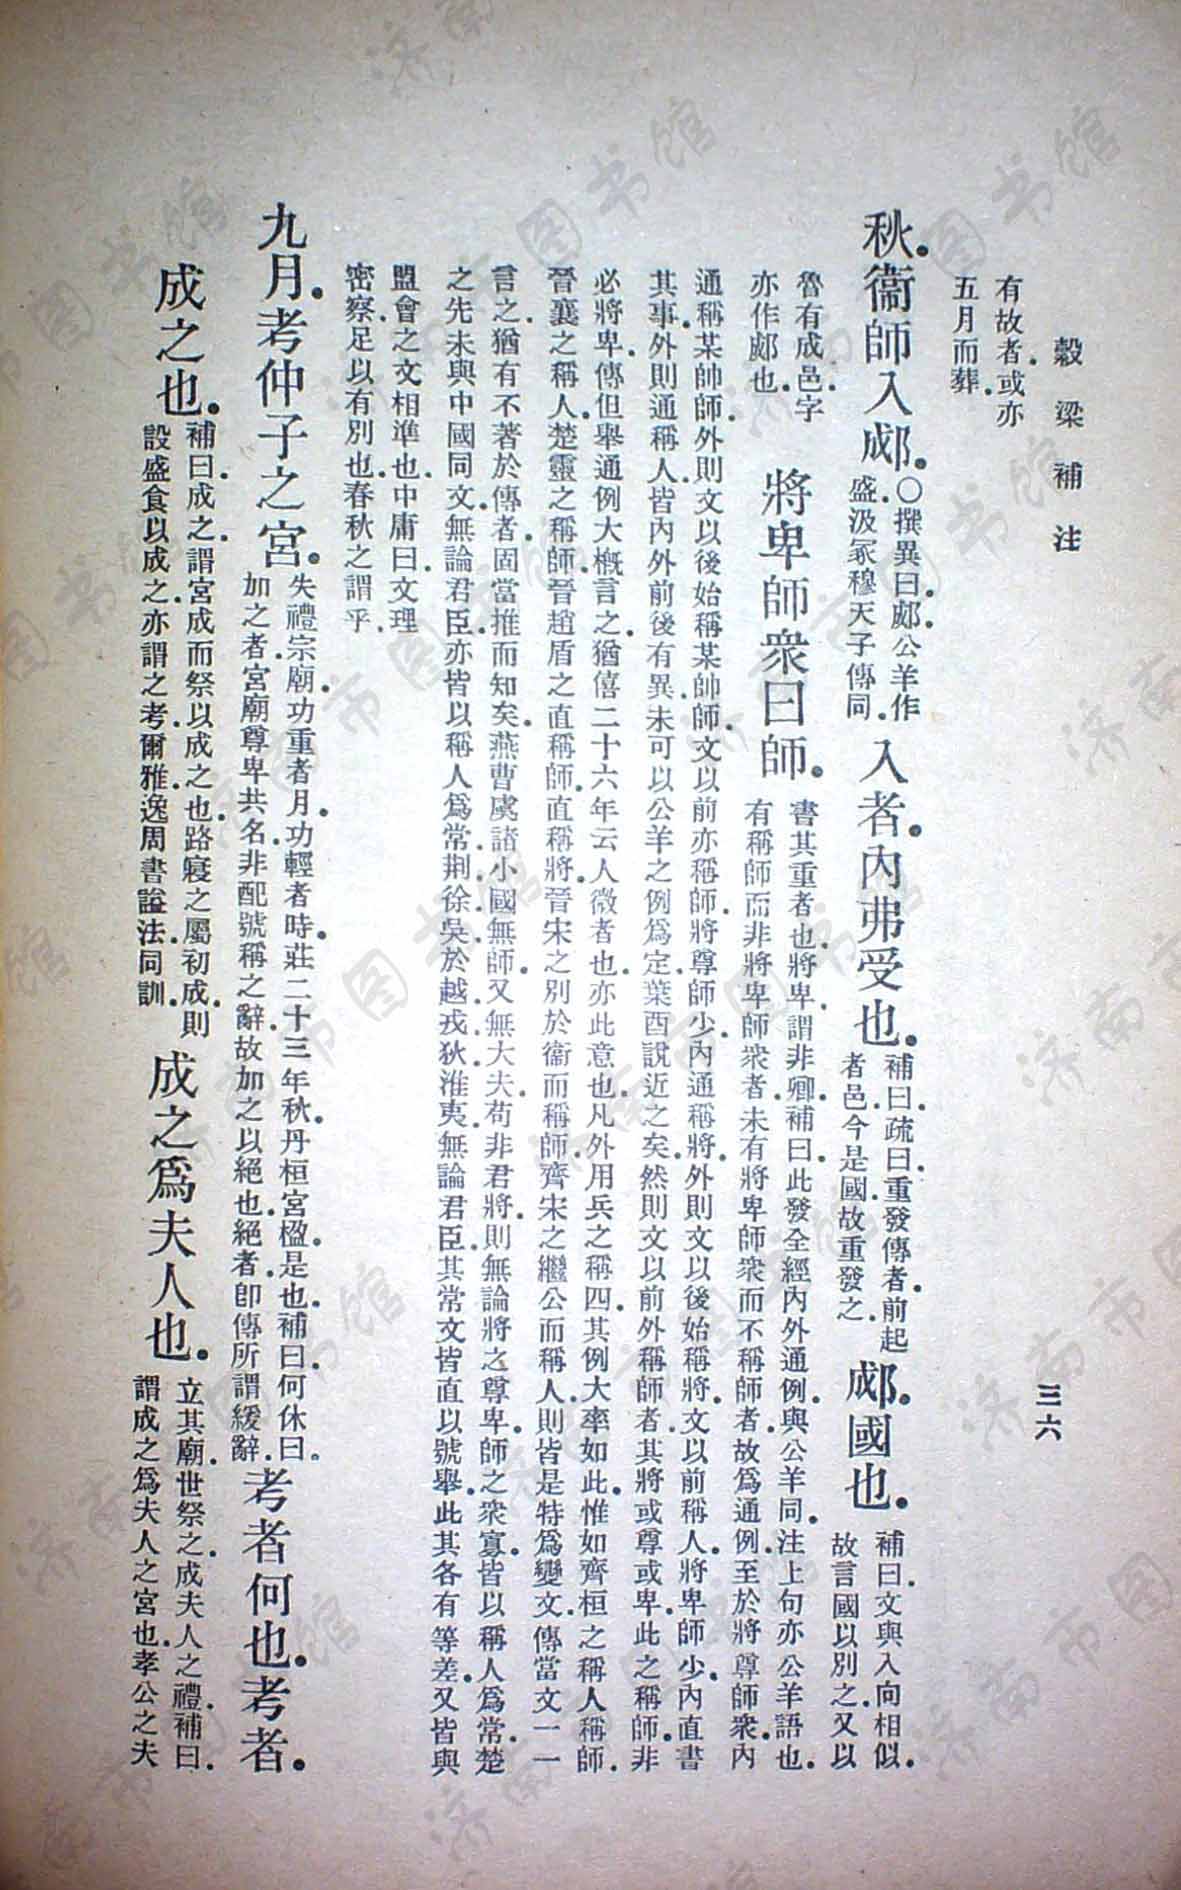 穀梁補注
三六
有故者.或亦
五月而葬.
秋.衞師入郕.
○撰異曰.郕.公羊作
盛.汲冢穆天子傳同.
入者.內弗受也.
補曰.疏曰.重發傳者.前起
者邑.今是國.故重發之.
郕.國也.
補曰.文與入向相似.
故言國以別之.又以
魯有成邑.字
亦作郕也.
將卑師衆曰師.
書其重者也.將卑.謂非卿.補曰.此發全經內外通例.與公羊同.注上句亦公羊語也.
有稱師而非將卑師衆者.未有將卑師衆而不稱師者.故爲通例.至於將尊師衆.內
通稱某帥師.外則文以後始稱某帥師.文以前亦稱師.將尊師少.內通稱將.外則文以後始稱將.文以前稱人.將卑師少.內直書
其事.外則通稱人.皆內外前後有異.未可以公羊之例爲定.葉酉說近之矣.然則文以前外稱師者.其將或尊或卑.此之稱師.非
必將卑.傳但舉通例大槪言之.猶僖二十六年云人微者也.亦此意也.凡外用兵之稱四.其例大率如此.惟如齊桓之稱人稱師.
晉襄之稱人.楚靈之稱師.晉趙盾之直稱師.直稱將.晉宋之別於衞而稱師.齊宋之繼公而稱人.則皆是特爲變文.傳當文一一
言之.猶有不著於傳者.固當推而知矣.燕曹虞諸小國無師.又無大夫.苟非君將.則無論將之尊卑.師之衆寡.皆以稱人爲常.楚
之先未與中國同文.無論君臣.亦皆以稱人爲常.荆徐吳於越戎狄淮夷.無論君臣.其常文皆直以號舉.此其各有等差.又皆與
盟會之文相準也.中庸曰.文理
密察.足以有別也.春秋之謂乎.
九月.考仲子之宮.
失禮宗廟.功重者月.功輕者時.莊二十三年秋.丹桓宮楹.是也.補曰.何休曰.
加之者.宮廟尊卑共名.非配號稱之辭.故加之以絕也.絕者.卽傳所謂緩辭.
考者何也.考者.
成之也.
補曰.成之.謂宮成而祭以成之也.路寢之屬初成.則
設盛食以成之.亦謂之考.爾雅逸周書謚法同訓.
成之爲夫人也.
立其廟.世祭之.成夫人之禮.補曰.
謂成之爲夫人之宮也.孝公之夫
济南市图书馆